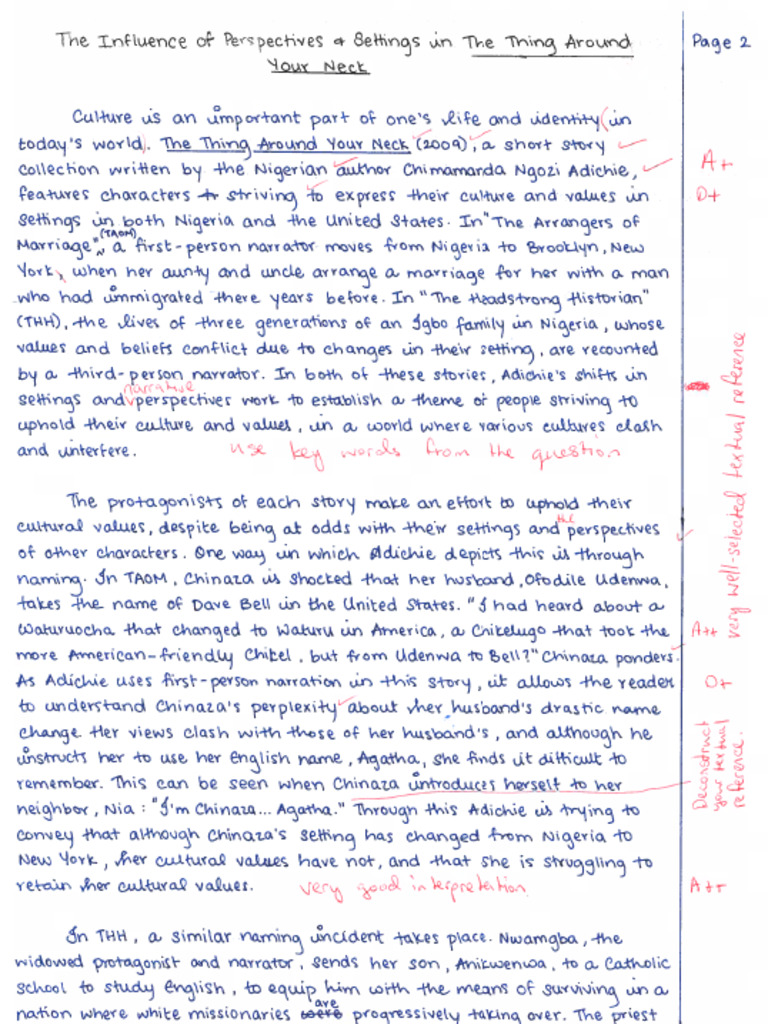 The Influence of Perspectives & Settings in The Thing Around
Your Neck
Page 2
Culture is an important part of one's life and identity (in
today's world). The Thing Around Your Neck (2009), a short story
collection written by the Nigerian author Chimamanda Ngozi Adichie,
A+
features characters to striving to express their culture and values in
O+
settings in both Nigeria and the United States. In "The Arrangers of
Marriage" (TAOM), a first-person narrator moves from Nigeria to Brooklyn, New
York, when her aunty and uncle arrange a marriage for her with a man
who had immigrated there years before. In "The Headstrong Historian"
(THH), the lives of three generations of an Igbo family in Nigeria, whose
values and beliefs conflict due to changes in their setting, are recounted
by a third-person narrator. In both of these stories, Adichie's shifts in
narrative
settings and perspectives work to establish a theme of people striving to
uphold their culture and values, in a world where various cultures clash
and interfere.
use key words from the question
very well-selected textual reference
The protagonists of each story make an effort to uphold their
cultural values, despite being at odds with their settings and the perspectives
of other characters. One way in which Adichie depicts this is through
naming. In TAOM, Chinaza is shocked that her husband, Ofodile Udenwa,
takes the name of Dave Bell in the United States. "I had heard about a
Waturuocha that changed to Waturu in America, a Chikelugo that took the
A++
more American-friendly Chikel, but from Udenwa to Bell?" Chinaza ponders.
As Adichie uses first-person narration in this story, it allows the reader
O+
to understand Chinaza's perplexity about her husband's drastic name
change. Her views clash with those of her husband's, and although he
instructs her to use her English name, Agatha, she finds it difficult to
remember. This can be seen when Chinaza introduces herself to her
Deconstruct
your textual
reference.
neighbor, Nia: "I'm Chinaza... Agatha." Through this Adichie is trying to
convey that although Chinaza's setting has changed from Nigeria to
New York, her cultural values have not, and that she is struggling to
retain her cultural values.
very good interpretation
A++
In THH, a similar naming incident takes place. Nwamgba, the
widowed protagonist and narrator, sends her son, Anikwenwa, to a Catholic
school to study English, to equip him with the means of surviving in a
nation where white missionaries were are progressively taking over. The priest